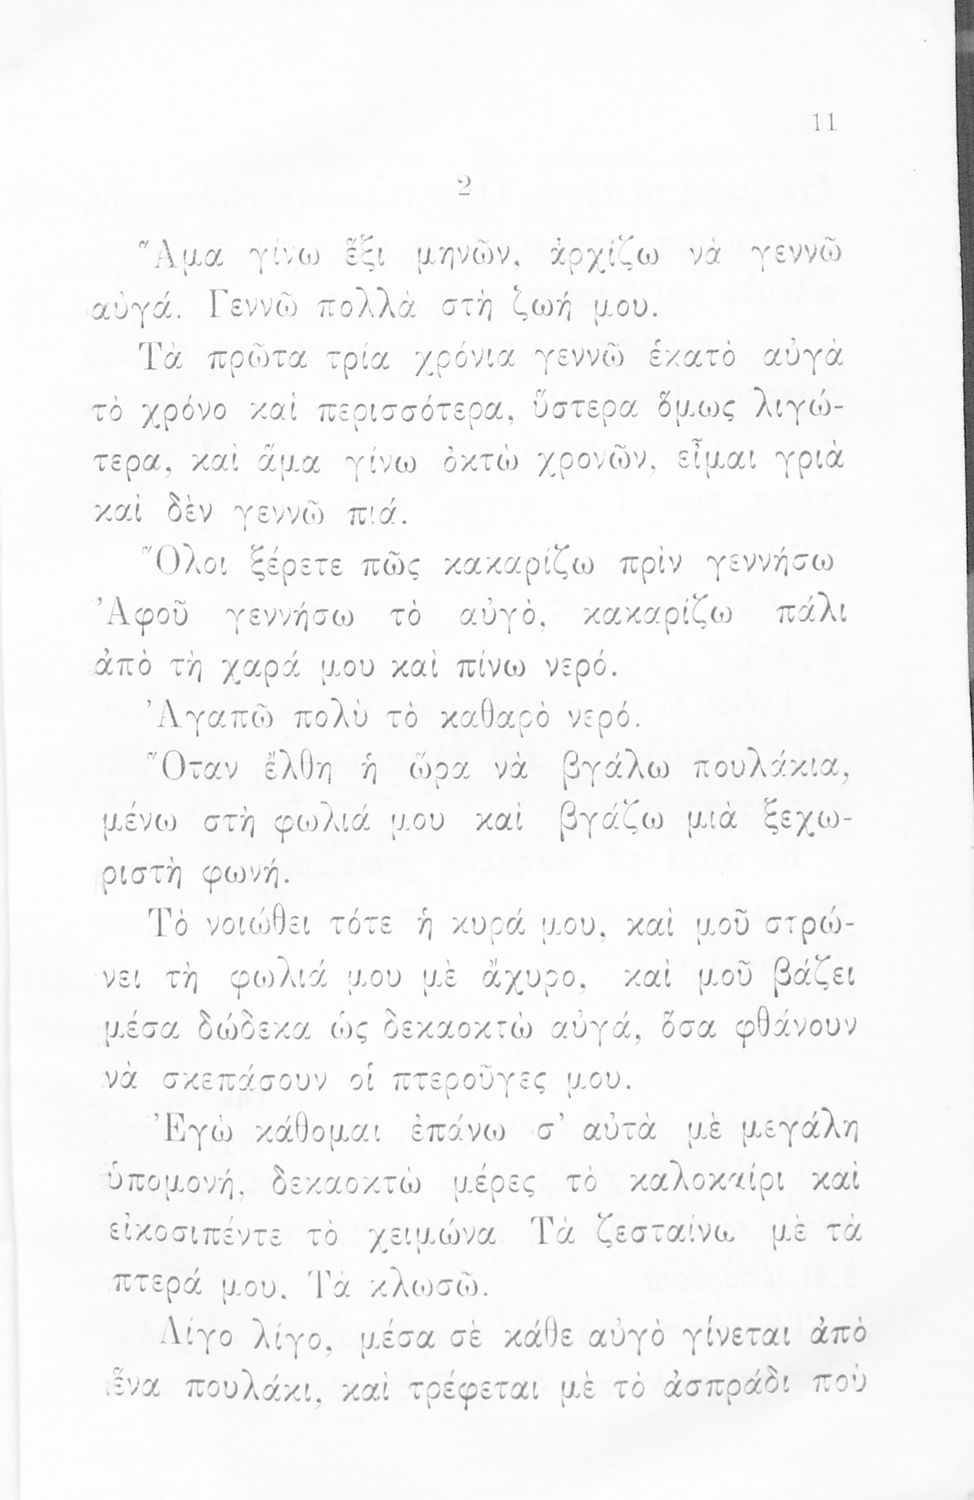 11
2
Ἅμα γίνω ἕξι μηνῶν, ἀρχίζω νὰ γεννῶ
αὐγά. Γεννῶ πολλὰ στὴ ζωή μου.
Τὰ πρῶτα τρία χρόνια γεννῶ ἑκατὸ αὐγὰ
τὸ χρόνο καὶ περισσότερα, ὕστερα ὅμως λιγώ-
τερα, καὶ ἅμα γίνω ὀκτὼ χρονῶν, εἶμαι γριὰ
καὶ δὲν γεννῶ πιά.
Ὅλοι ξέρετε πῶς κακαρίζω πρὶν γεννήσω
Ἀφοῦ γεννήσω τὸ αὐγὸ, κακαρίζω πάλι
ἀπὸ τὴ χαρά μου καὶ πίνω νερό.
Ἀγαπῶ πολὺ τὸ καθαρὸ νερό.
Ὅταν ἔλθη ἡ ὥρα νὰ βγάλω πουλάκια,
μένω στὴ φωλιά μου καὶ βγάζω μιὰ ξεχω-
ριστὴ φωνή.
Τὸ νοιώθει τότε ἡ κυρά μου, καὶ μοῦ στρώ-
νει τὴ φωλιά μου μὲ ἄχυρο, καὶ μοῦ βάζει
μέσα δώδεκα ὡς δεκαοκτὼ αὐγά, ὅσα φθάνουν
νὰ σκεπάσουν οἱ πτεροῦγες μου.
Ἐγὼ κάθομαι ἐπάνω σ' αὐτὰ μὲ μεγάλη
ὑπομονή, δεκαοκτὼ μέρες τὸ καλοκαίρι καὶ
εἰκοσιπέντε τὸ χειμώνα Τὰ ζεσταίνω μὲ τὰ
πτερά μου. Τὰ κλωσῶ.
Λίγο λίγο, μέσα σὲ κάθε αὐγὸ γίνεται ἀπὸ
ἕνα πουλάκι, καὶ τρέφεται μὲ τὸ ἀσπράδι ποὺ